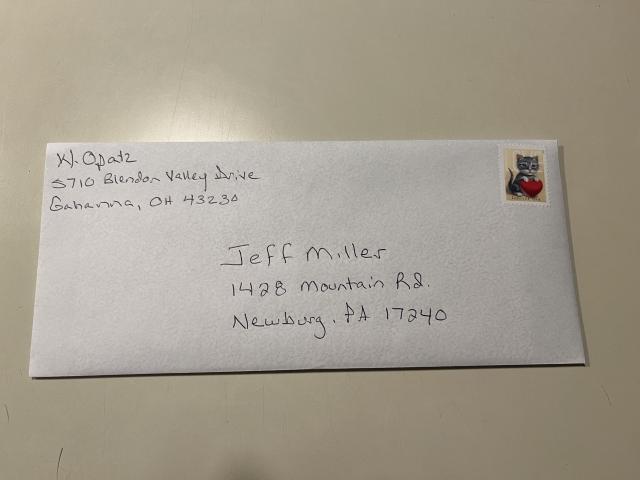 W. Opatz
5710 Blendon Valley Drive
Gahanna, OH 43230
Jeff Miller
1428 Mountain Rd.
Newburg, PA 17240